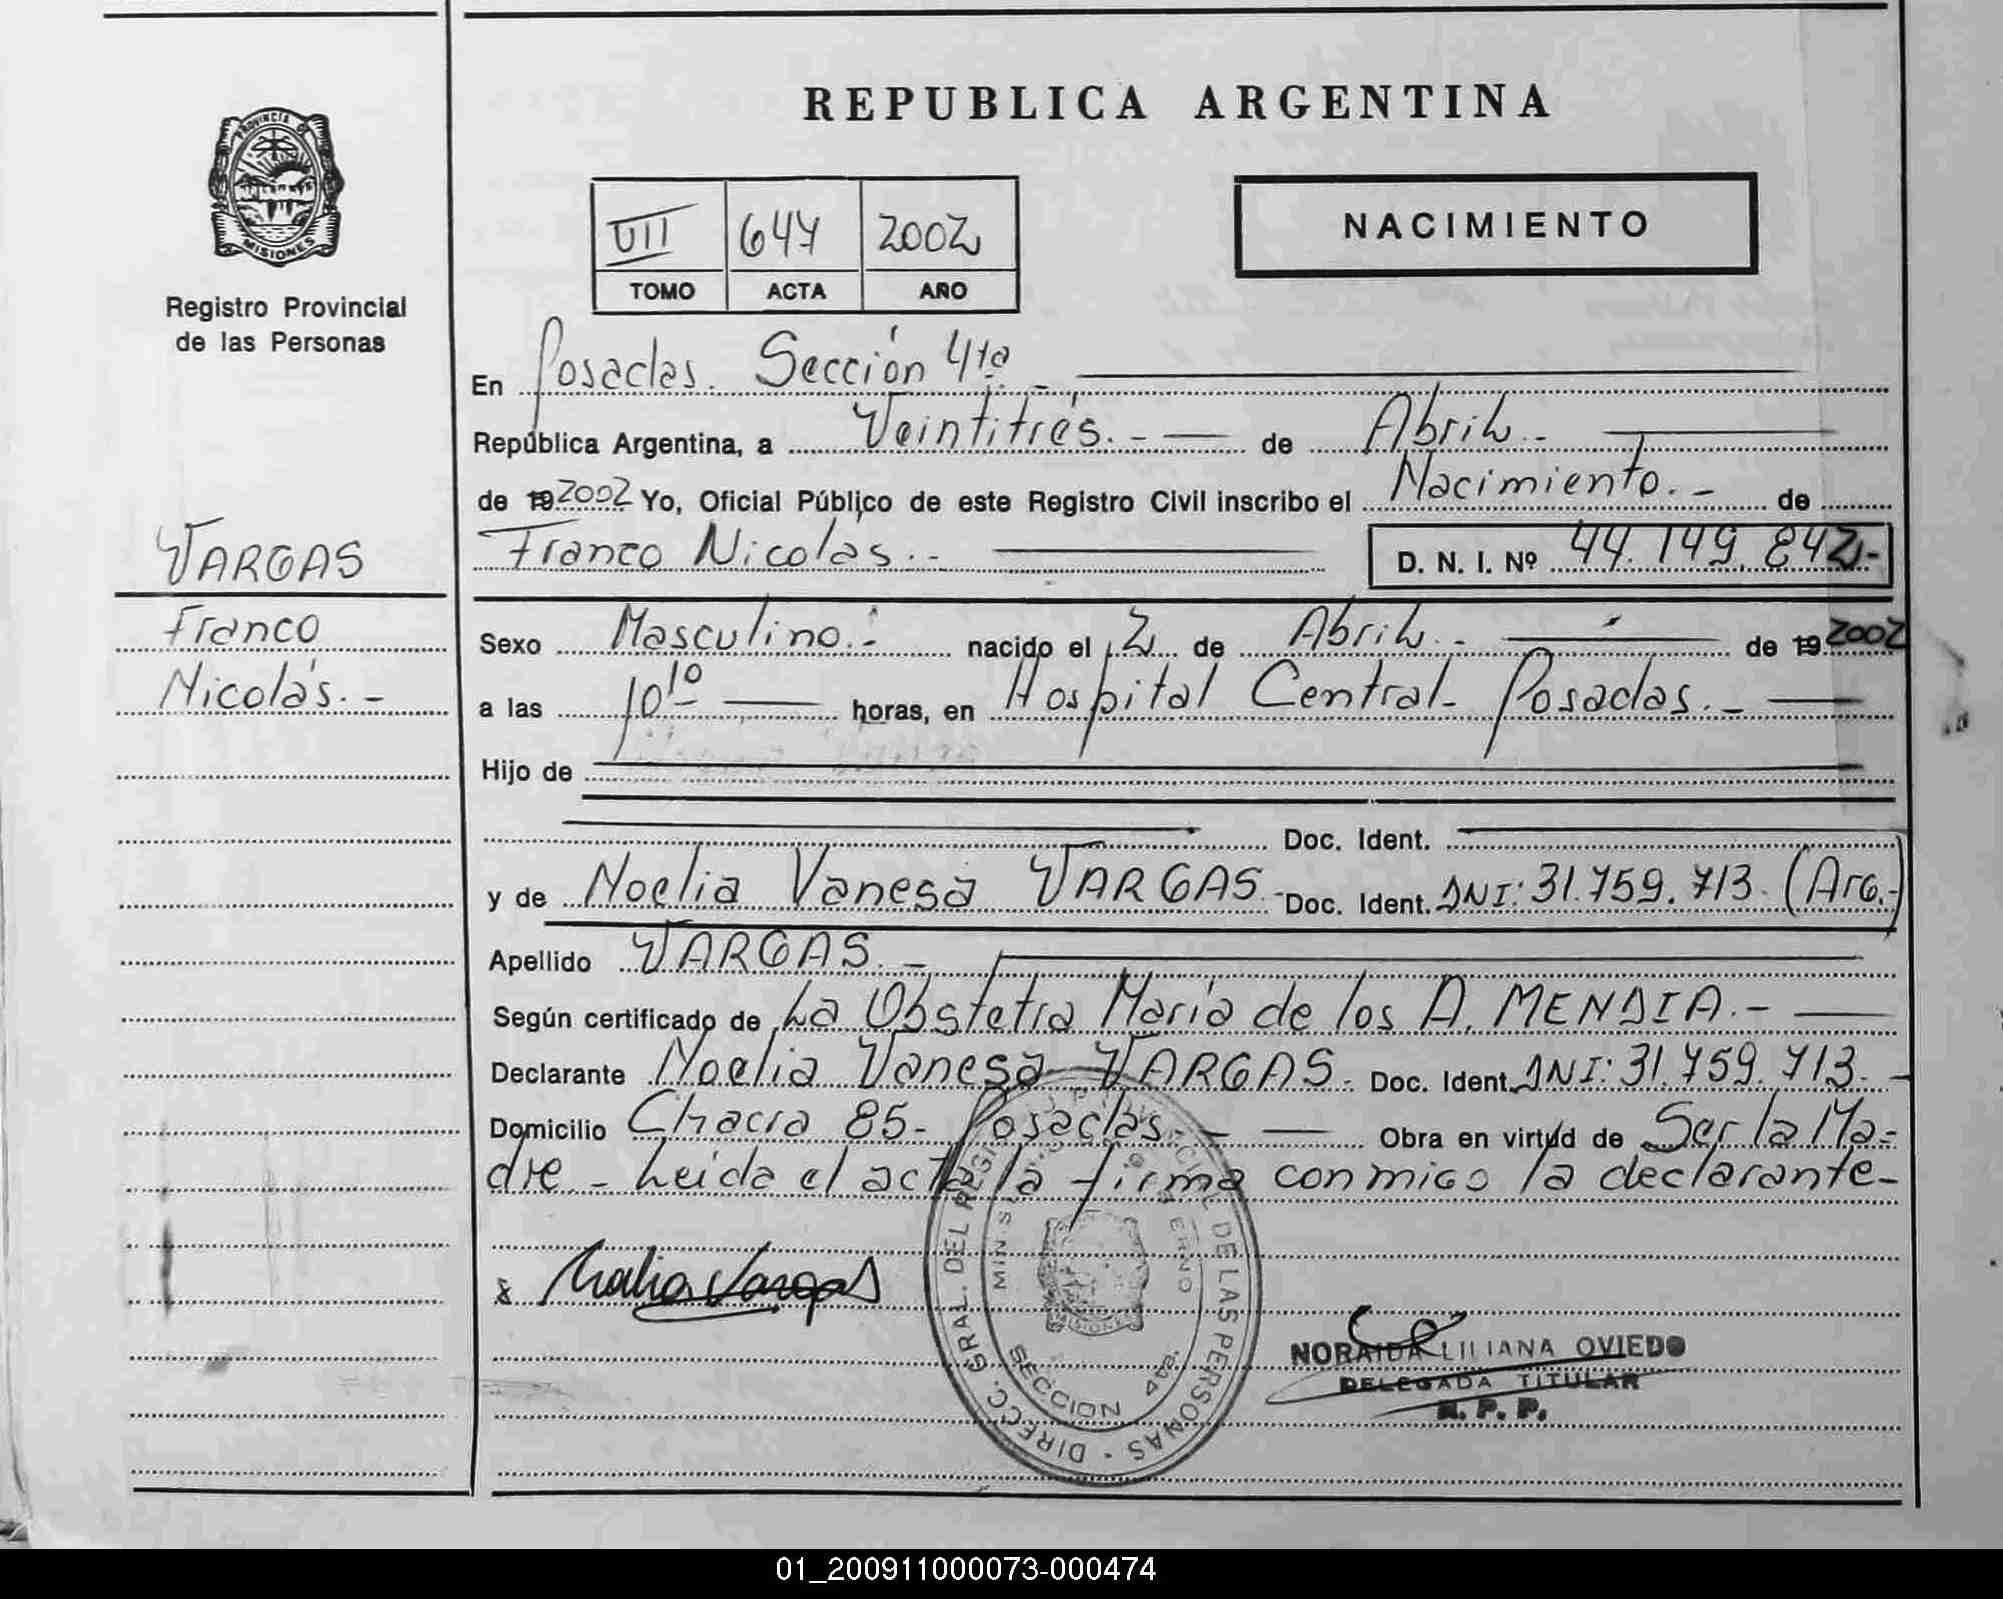 REPUBLICA ARGENTINA
PROVINCIA DE
MISIONES
Registro Provincial
de las Personas
VII 647 2002
TOMO ACTA AÑO
NACIMIENTO
En Posadas. Sección 4ta -
República Argentina, a Veintitrés. - de Abril. -
de 19 2002 Yo, Oficial Público de este Registro Civil inscribo el Nacimiento. - de
Franco Nicolás. - D. N. I. Nº 44.149.842.-
VARGAS
Franco
Nicolás. -
Sexo Masculino. - nacido el 2 de Abril. - de 19 2002
a las 10 10 horas, en Hospital Central - Posadas. -
Hijo de
Doc. Ident.
y de Noelia Vanesa VARGAS - Doc. Ident. DNI: 31.759.713. (Arg.-)
Apellido VARGAS. -
Según certificado de La Obstetra María de los A. MENDIA. -
Declarante Noelia Vanesa VARGAS. Doc. Ident. DNI: 31.759.713. -
Domicilio Chacra 85 - Posadas. - Obra en virtud de Ser la Ma-
dre - Leida el acta la firma conmigo la declarante-
x Noelia Vargas
DIRECC. GRAL. DEL DE LAS PERSONAS
MISIONES
SECCION 4ta.
NORAIDA LILIANA OVIEDO
DELEGADA TITULAR
R. P. P.
01_200911000073-000474